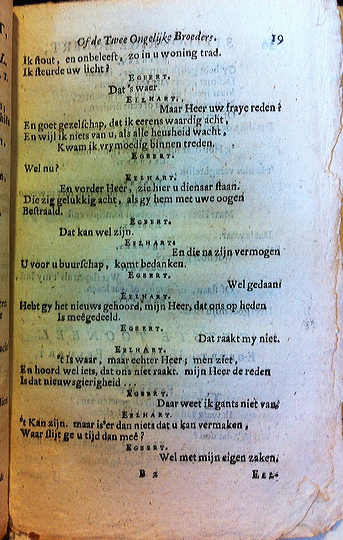 Of de Twee Ongelijke Broeders. 19
Ik stout, en onbeleeft, zo in u woning trad.
Ik steurde uw licht?
EGBERT.
Dat 's waer.
EELHART.
Maar Heer uw fraye reden?
En goet gezelschap, dat ik eerens waardig acht,
En wijl ik niets van u, als alle heusheid wacht,
Kwam ik vrymoedig binnen treden.
EGBERT.
Wel nu?
EELHART.
En vorder Heer, zie hier u dienaar staan.
Die zig gelukkig acht, als gy hem met uwe oogen
Bestraald.
EGBERT.
Dat kan wel zijn.
EELHART.
En die na zijn vermogen
U voor u buurschap, komt bedanken.
EGBERT.
Wel gedaan!
EELHART.
Hebt gy het nieuws gehoord, mijn Heer, dat ons op heden
Is meêgedeeld.
EGBERT.
Dat raakt my niet.
EELHART.
't Is waar, maar echter Heer; men ziet,
En hoord wel iets, dat ons niet raakt. mijn Heer de reden
Is dat nieuwsgierigheid ...
EGBERT.
Daar weet ik gants niet van.
EELHART.
't Kan zijn. maar is'er dan niets dat u kan vermaken,
Waar slijt ge u tijd dan meê?
EGBERT.
Wel met mijn eigen zaken.
B 2 EEL-